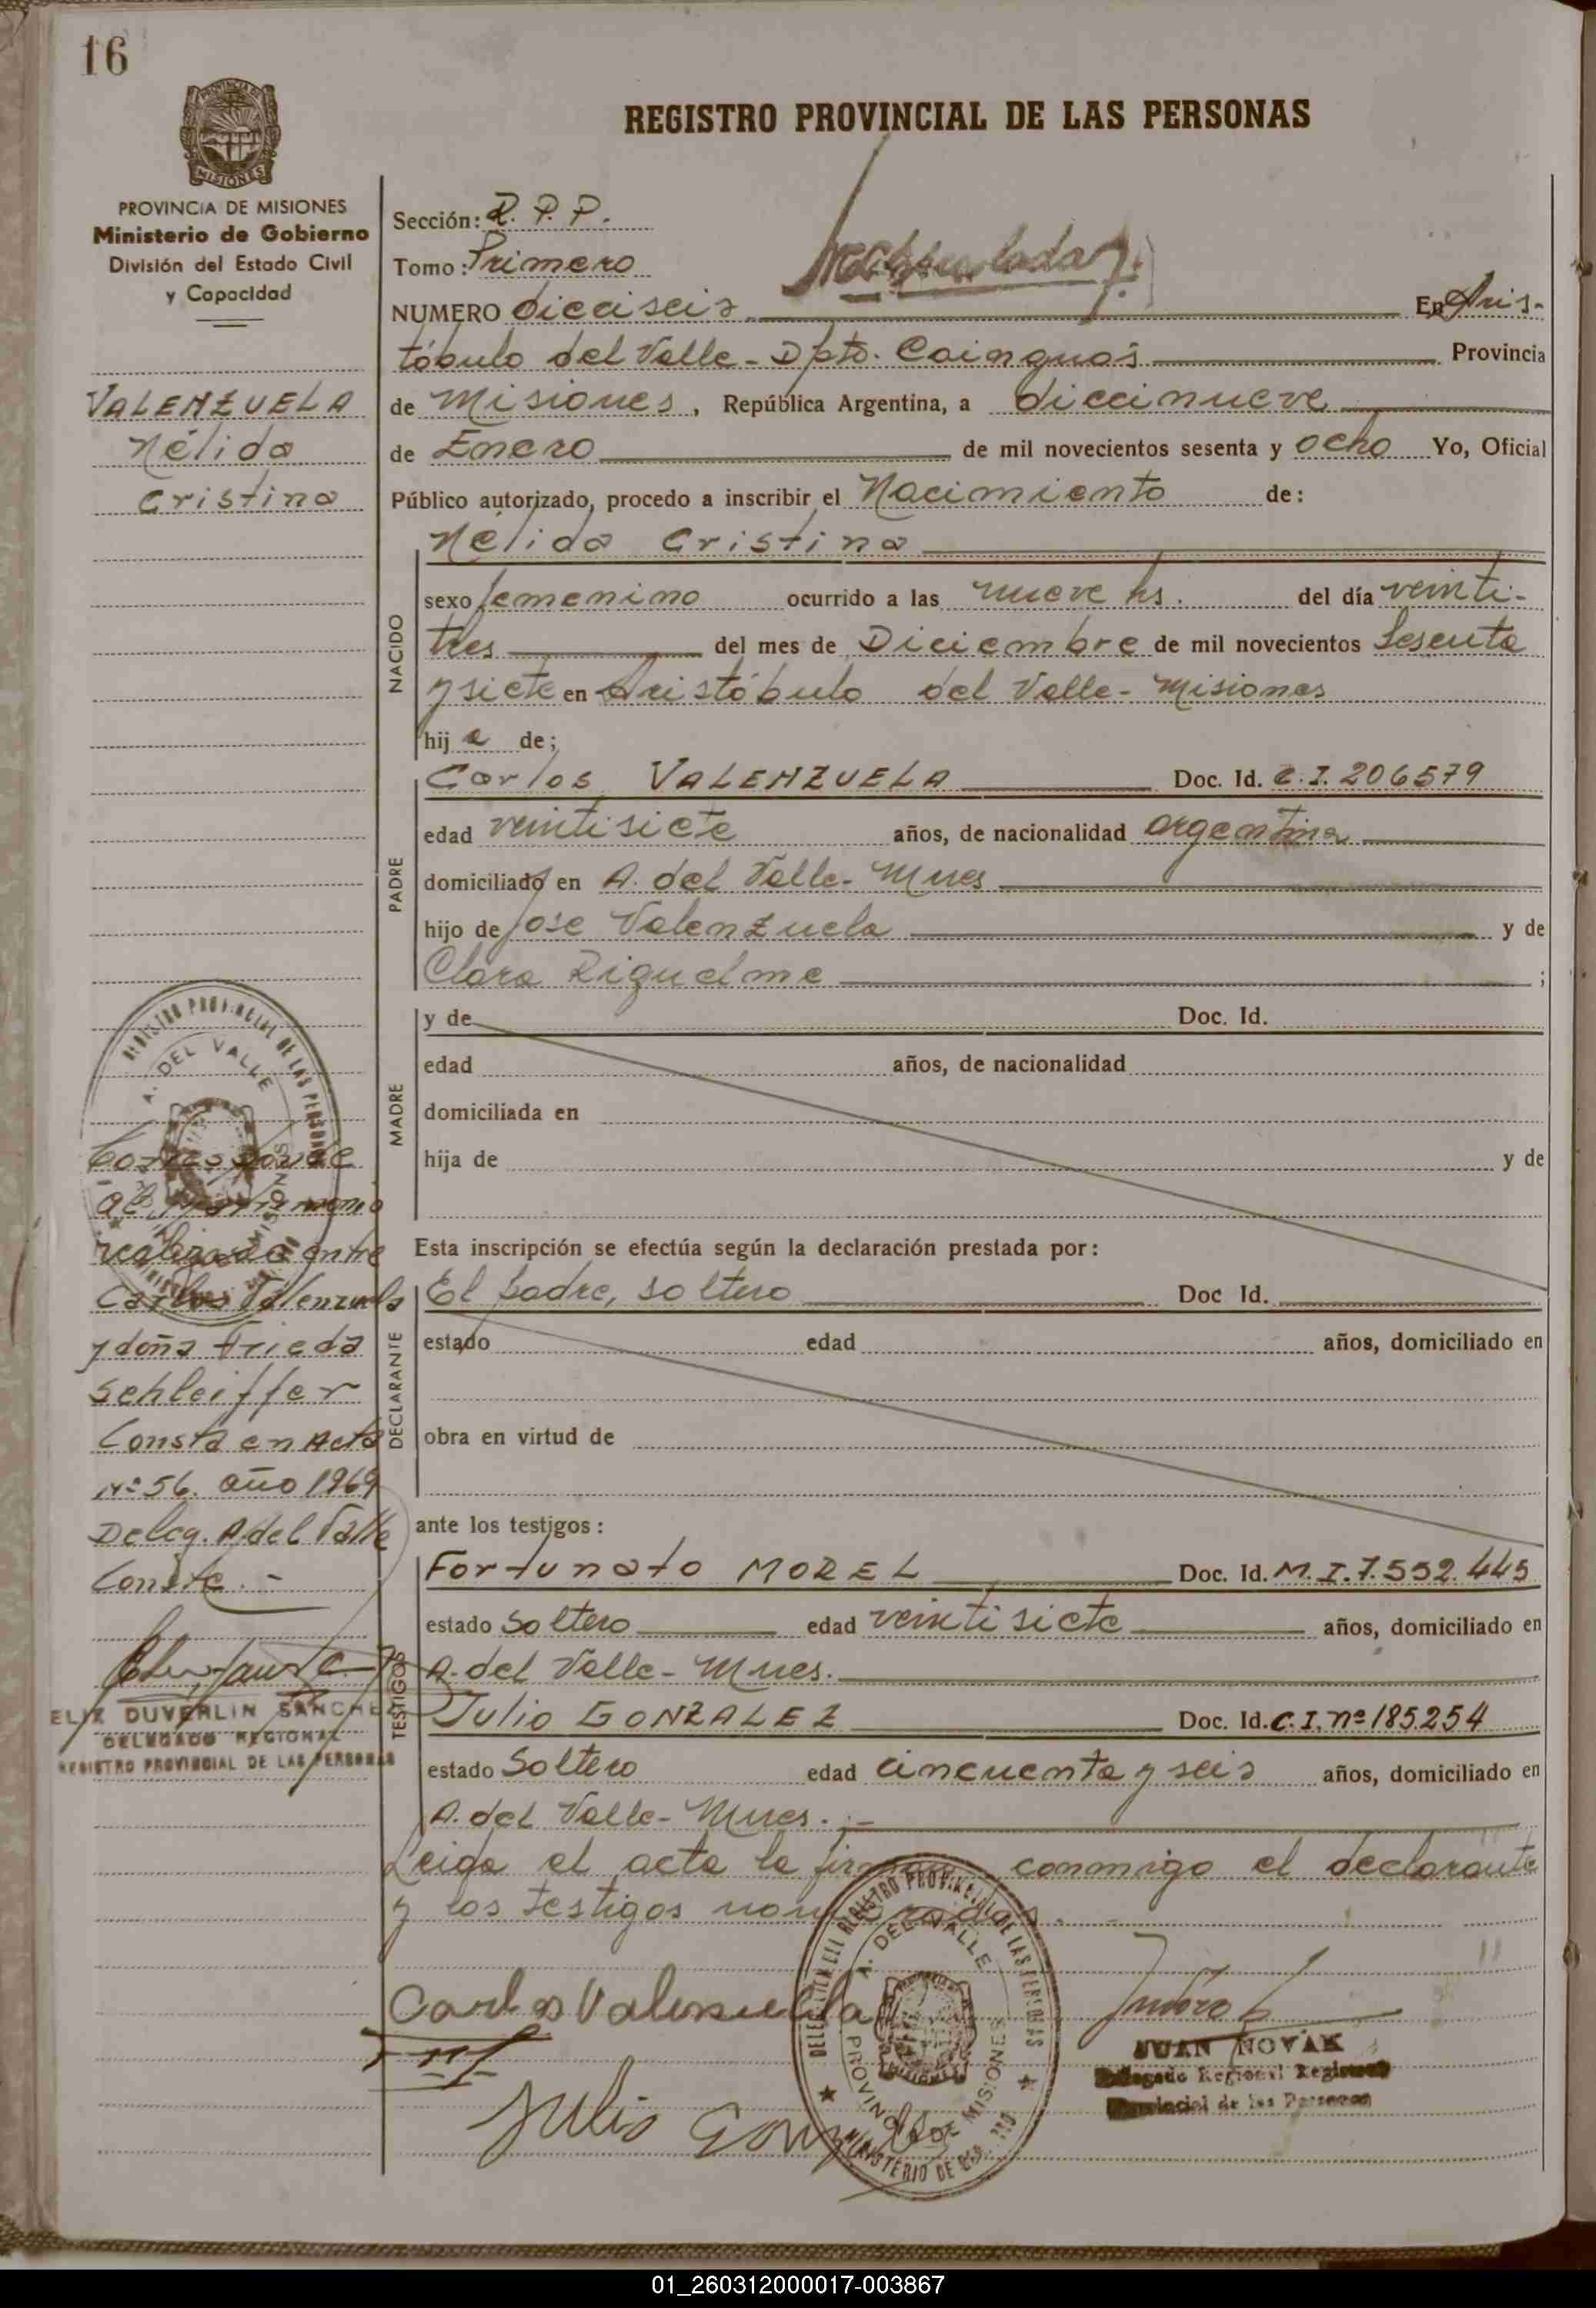 16
REGISTRO PROVINCIAL DE LAS PERSONAS
PROVINCIA DE MISIONES
Ministerio de Gobierno
División del Estado Civil
y Capacidad
VALENZUELA
Nélida
Cristina
Sección: R. P. P.
Tomo: Primero
NUMERO dieciseis En Aris-
tóbulo del Valle - Dpto. Cainguas Provincia
de Misiones, República Argentina, a diecinueve
de Enero de mil novecientos sesenta y ocho Yo, Oficial
Público autorizado, procedo a inscribir el Nacimiento de:
NACIDO
Nélida Cristina
sexo femenino ocurrido a las nueve hs. del día veinti-
tres del mes de Diciembre de mil novecientos sesenta
y siete en Aristóbulo del Valle - Misiones
hij a de;
PADRE
Carlos VALENZUELA Doc. Id. C.I. 206579
edad veintisiete años, de nacionalidad argentina
domiciliado en A. del Valle - Mnes
hijo de José Valenzuela y de
Clara Riquelme ;
MADRE
y de Doc. Id.
edad años, de nacionalidad
domiciliada en
hija de y de
Esta inscripción se efectúa según la declaración prestada por:
DECLARANTE
El padre, soltero Doc Id.
estado edad años, domiciliado en
obra en virtud de
ante los testigos:
TESTIGOS
Fortunato MOREL Doc. Id. M.I. 7.552.445
estado soltero edad veintisiete años, domiciliado en
A. del Valle - Mnes.
Julio GONZALEZ Doc. Id. C.I. nº 185254
estado Soltero edad cincuenta y seis años, domiciliado en
A. del Valle - Mnes. -
Leida el acta la firman conmigo el declarante
y los testigos nombrados.
Corresponde
al Matrimonio
realizado entre
Carlos Valenzuela
y doña Frieda
Schleiffer
Consta en Acta
Nº 56. año 1969
Deleg. A. del Valle
Conste. -
ELIX DUVERLIN SANCHEZ
DELEGADO REGIONAL
REGISTRO PROVINCIAL DE LAS PERSONAS
REGISTRO PROVINCIAL DE LAS PERSONAS
A. DEL VALLE
MISIONES
Carlos Valenzuela
Julio Gonzales
DELEGACION DEL REGISTRO PROVINCIAL DE LAS PERSONAS
A. DEL VALLE
PROVINCIA DE MISIONES
MINISTERIO DE
JUAN NOVAK
Delegado Regional Registro
Provincial de las Personas
01_260312000017-003867